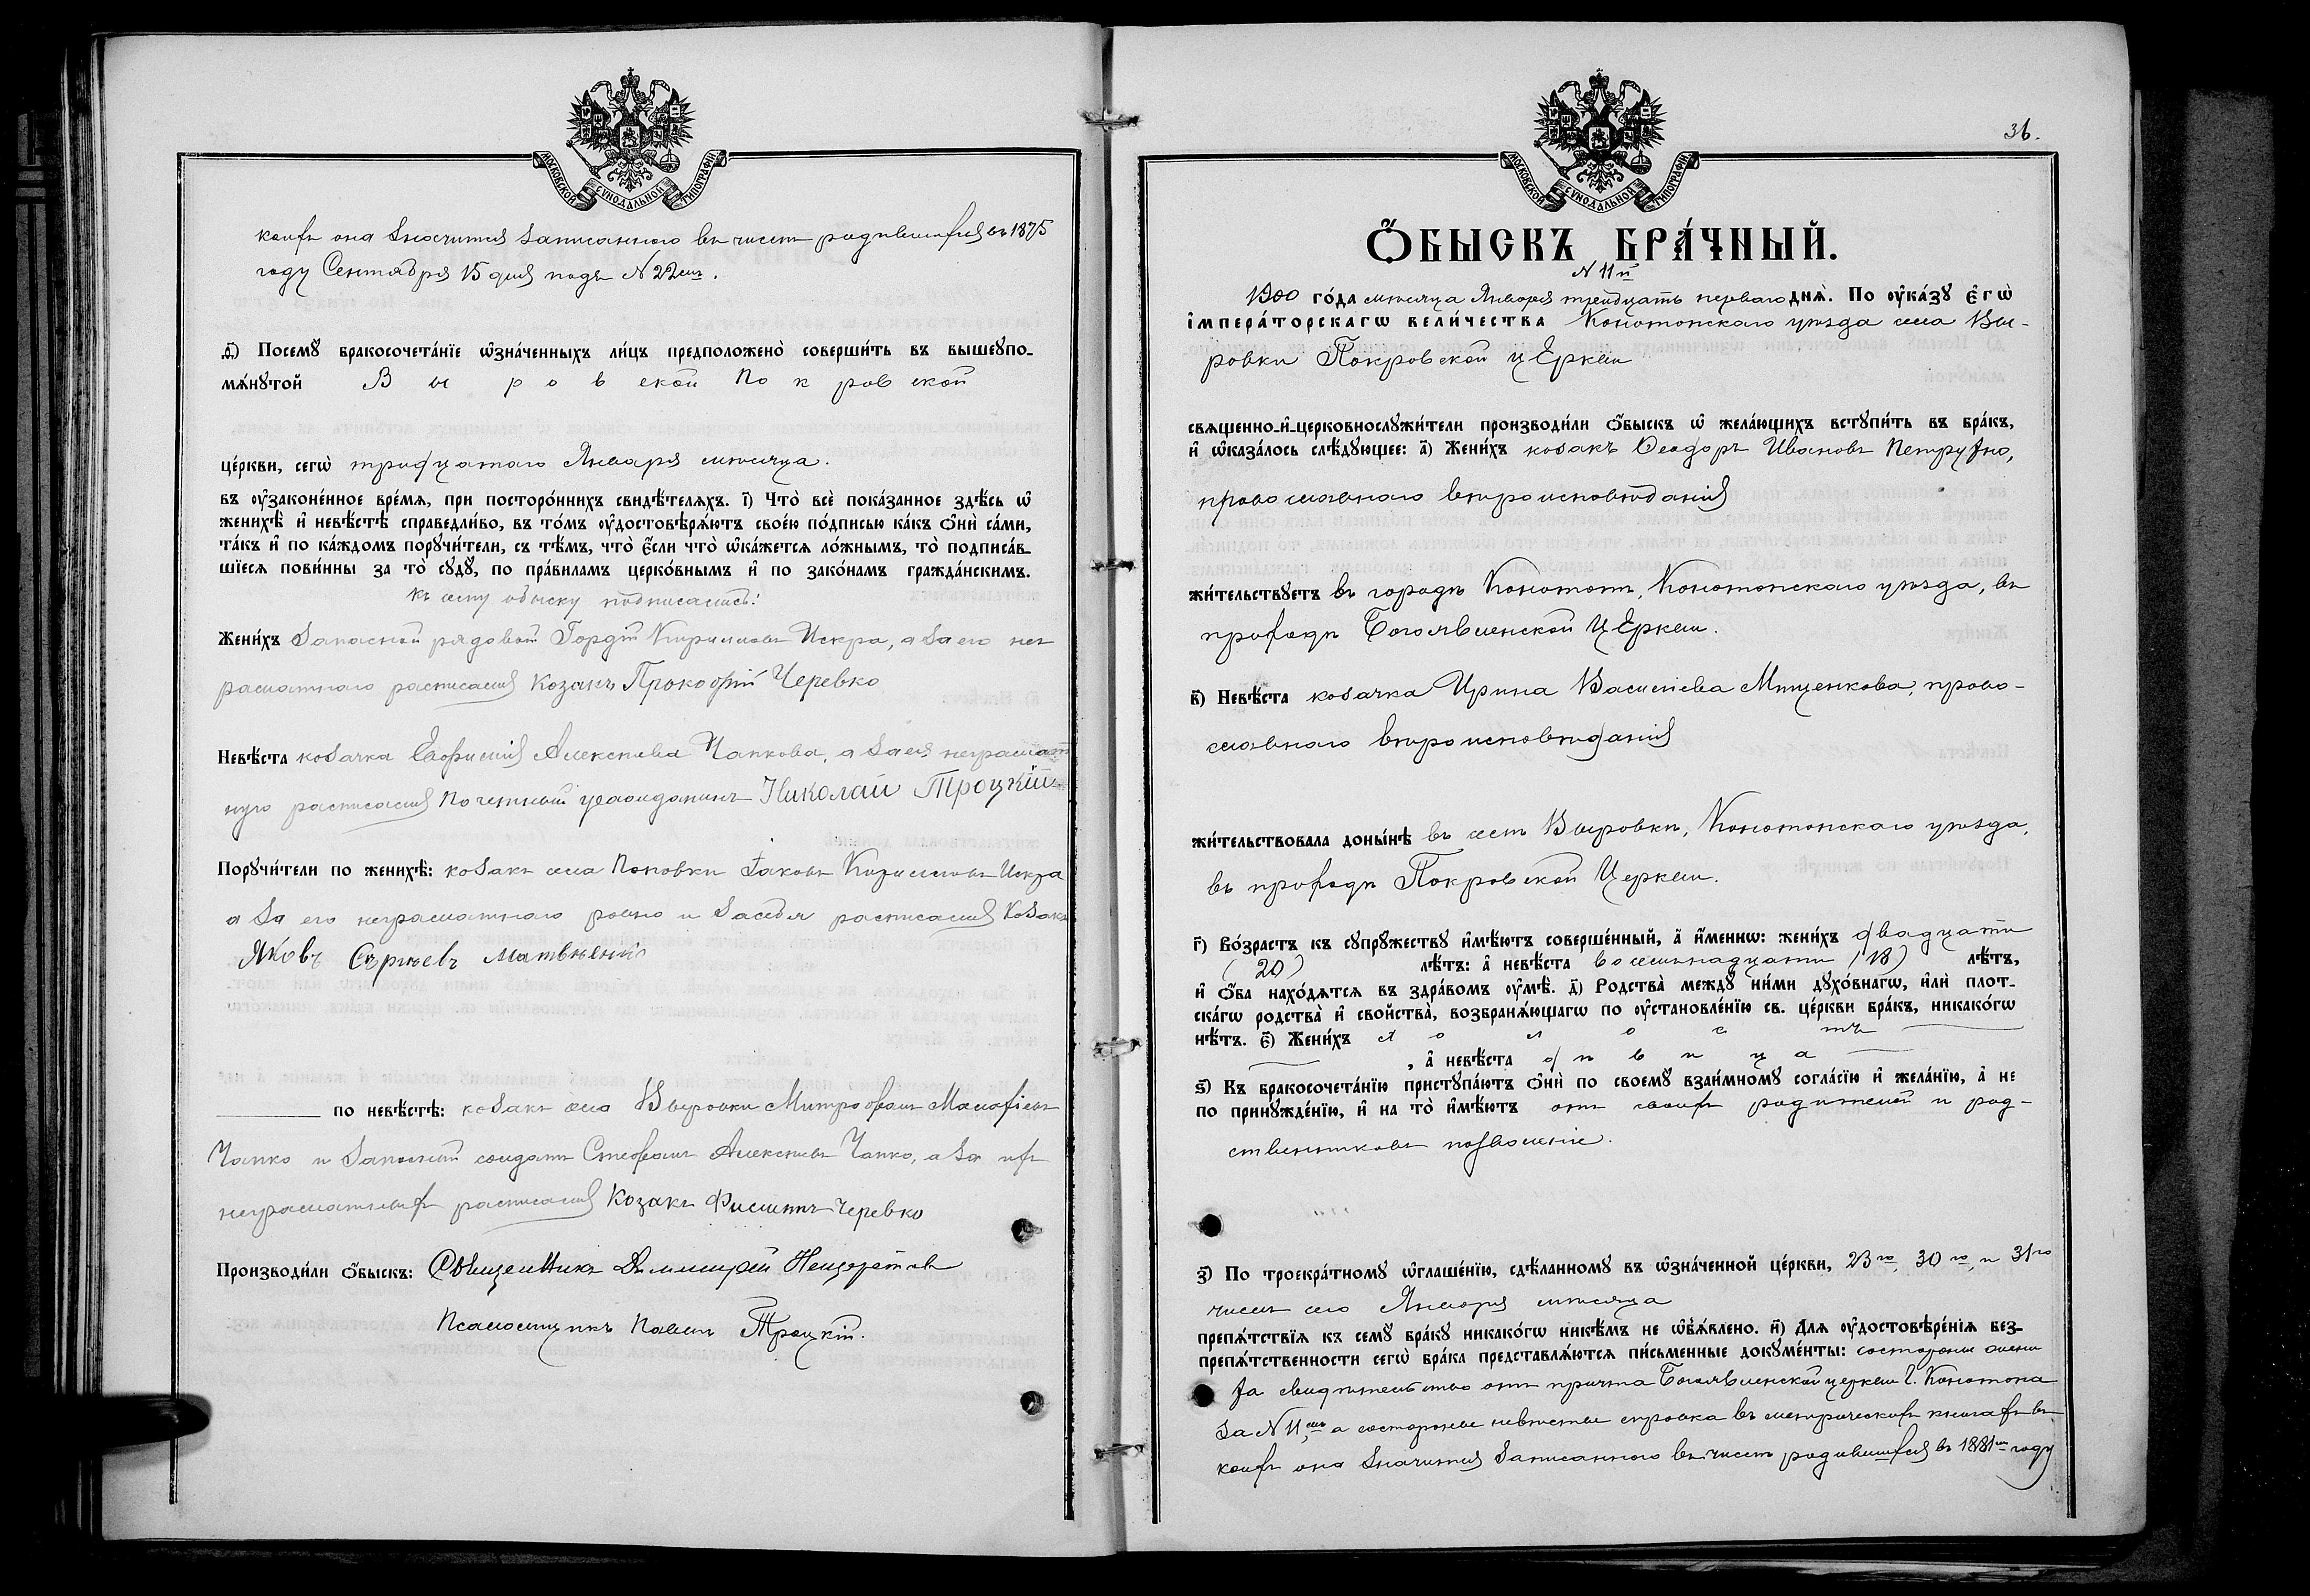 МОСКОВСКОЙ СѴНОДАЛЬНОЙ ТИПОГРАФІИ
коихъ она значится записанною въ числѣ родившихся въ 1875
году Сентября 15 дня подъ № 22мъ.
Посемꙋ̀ бракосочета́нїе ѡ҆зна́ченныхъ ли́цъ предположено̀ соверши́ть въ вышеꙋпо-
мѧ́нꙋтой Выровской Покровской
це́ркви, сегѡ̀ тридцатаго Января мѣсяца.
въ ᲂу҆законе́нное вре́мѧ, при посторо́ннихъ свидѣ́телѧхъ. і҃) Что̀ всѐ пока́занное здѣ́сь ѡ҆
женихѣ̀ и҆ невѣ́стѣ справедли́во, въ то́мъ ᲂу҆достовѣрѧ́ютъ свое́ю по́дписью ка́къ ѻ҆нѝ са́ми,
та́къ и҆ по ка́ждомъ порꙋчи́тели, съ тѣ́мъ, что̀ є҆́сли что̀ ѡ҆ка́жетсѧ ло́жнымъ, то̀ подписа́в-
шїесѧ пови́нны за то̀ сꙋдꙋ̀, по пра́виламъ церко́внымъ и҆ по зако́намъ гражда́нскимъ.
Къ сему обыску подписались:
Жени́хъ Запасной рядовой Гордѣй Кириловъ Искра, а за его нег
рамотнаго расписался Козакъ Прокофій Черевко
Невѣ́ста козачка Евфимія Алексѣева Чапкова, а за ея неграмот
ную расписался Почетный гражданинъ Николай Троцкій
Порꙋчи́тели по женихѣ̀: козакъ села Поповки Іаковъ Кириловъ Искра
а за его неграмотнаго равно и засебя расписался Козакъ
Яковъ Сергѣевъ Матвѣенко
по невѣ́стѣ: козакъ села Выровки Митрофанъ Малофіевъ
Чапко и запасный солдатъ Стефанъ Алексѣевъ Чапко, а за ихъ
неграмотныхъ расписался Козакъ Филиппъ Черевко
Производи́ли ѻ҆́быскъ: Священникъ Димитрій
Псаломщикъ Павелъ Троцкій.
36.
МОСКОВСКОЙ СѴНОДАЛЬНОЙ ТИПОГРАФІИ
Ѻ҆́БЫСКЪ БРА́ЧНЫЙ.
№ 11й
1900 го́да мѣсяца Января тридцать перваго днѧ̀. По ᲂу҆ка́зꙋ є҆гѡ̀
і҆мпера́торскагѡ вели́чества Конотопскаго уѣзда села Вы-
ровки Покровской церкви
свѧщенно-и҆-церковнослꙋжи́тели производи́ли ѻ҆́быскъ ѡ҆ жела́ющихъ встꙋпи́ть въ бра́къ,
и҆ ѡ҆каза́лось слѣ́дꙋющее: а҃) Жени́хъ козакъ Ѳеодоръ Ивановъ Петрухно,
православнаго вѣроисповѣданія
жи́тельствꙋетъ въ городѣ Конотопѣ, Конотопскаго уѣзда, въ
приходѣ Богоявленской церкви.
в҃) Невѣ́ста козачка Ирина Васильева Мищенкова, право-
славнаго вѣроисповѣданія
жи́тельствовала доны́нѣ въ селѣ Выровки, Конотопскаго уѣзда,
въ приходѣ Покровской Церкви.
г҃) Во́зрастъ къ сꙋпрꙋ́жествꙋ и҆мѣ́ютъ соверше́нный, а҆ и҆́менно: жени́хъ двадцати
(20) лѣ́тъ: а҆ невѣ́ста восемнадцати (18) лѣ́тъ,
и҆ ѻ҆́ба нахо́дѧтсѧ въ здра́вомъ ᲂу҆мѣ̀. д҃) Родства̀ междꙋ̀ ни́ми дꙋхо́внагѡ, и҆лѝ плот-
ска́гѡ родства̀ и҆ свойства̀, возбранѧ́ющагѡ по ᲂу҆становле́нїю св. це́ркви бра́къ, никако́гѡ
нѣ́тъ. є҃) Жени́хъ холостъ
, а҆ невѣ́ста дѣвица
ѕ҃) Къ бракосочета́нїю пристꙋпа́ютъ ѻ҆нѝ по своемꙋ̀ взаи́мномꙋ согла́сїю и҆ жела́нїю, а҆ не
по принꙋжде́нїю, и҆ на то̀ и҆мѣ́ютъ отъ своихъ родителей и род-
ственниковъ позволеніе.
з҃) По троекра́тномꙋ ѡ҆глаше́нїю, сдѣ́ланномꙋ въ ѡ҆зна́ченной це́ркви, 23го, 30го, и 31го
чиселъ сего Января мѣсяца
препѧ́тствїѧ къ семꙋ̀ бра́кꙋ никако́гѡ никѣ́мъ не ѡ҆б̾ѧ́влено. и҃) Длѧ ᲂу҆достовѣре́нїѧ без-
препѧ́тственности сегѡ̀ бра́ка представлѧ́ютсѧ пи́сьменные докꙋме́нты: состороны жени
ха свидѣтельство отъ причта Богоявленской церкви г. Конотопа
за № 11мъ, а состороны невѣсты справка въ метрическихъ книгахъ въ
коихъ она значится записанною въ числѣ родившихся въ 1881мъ году